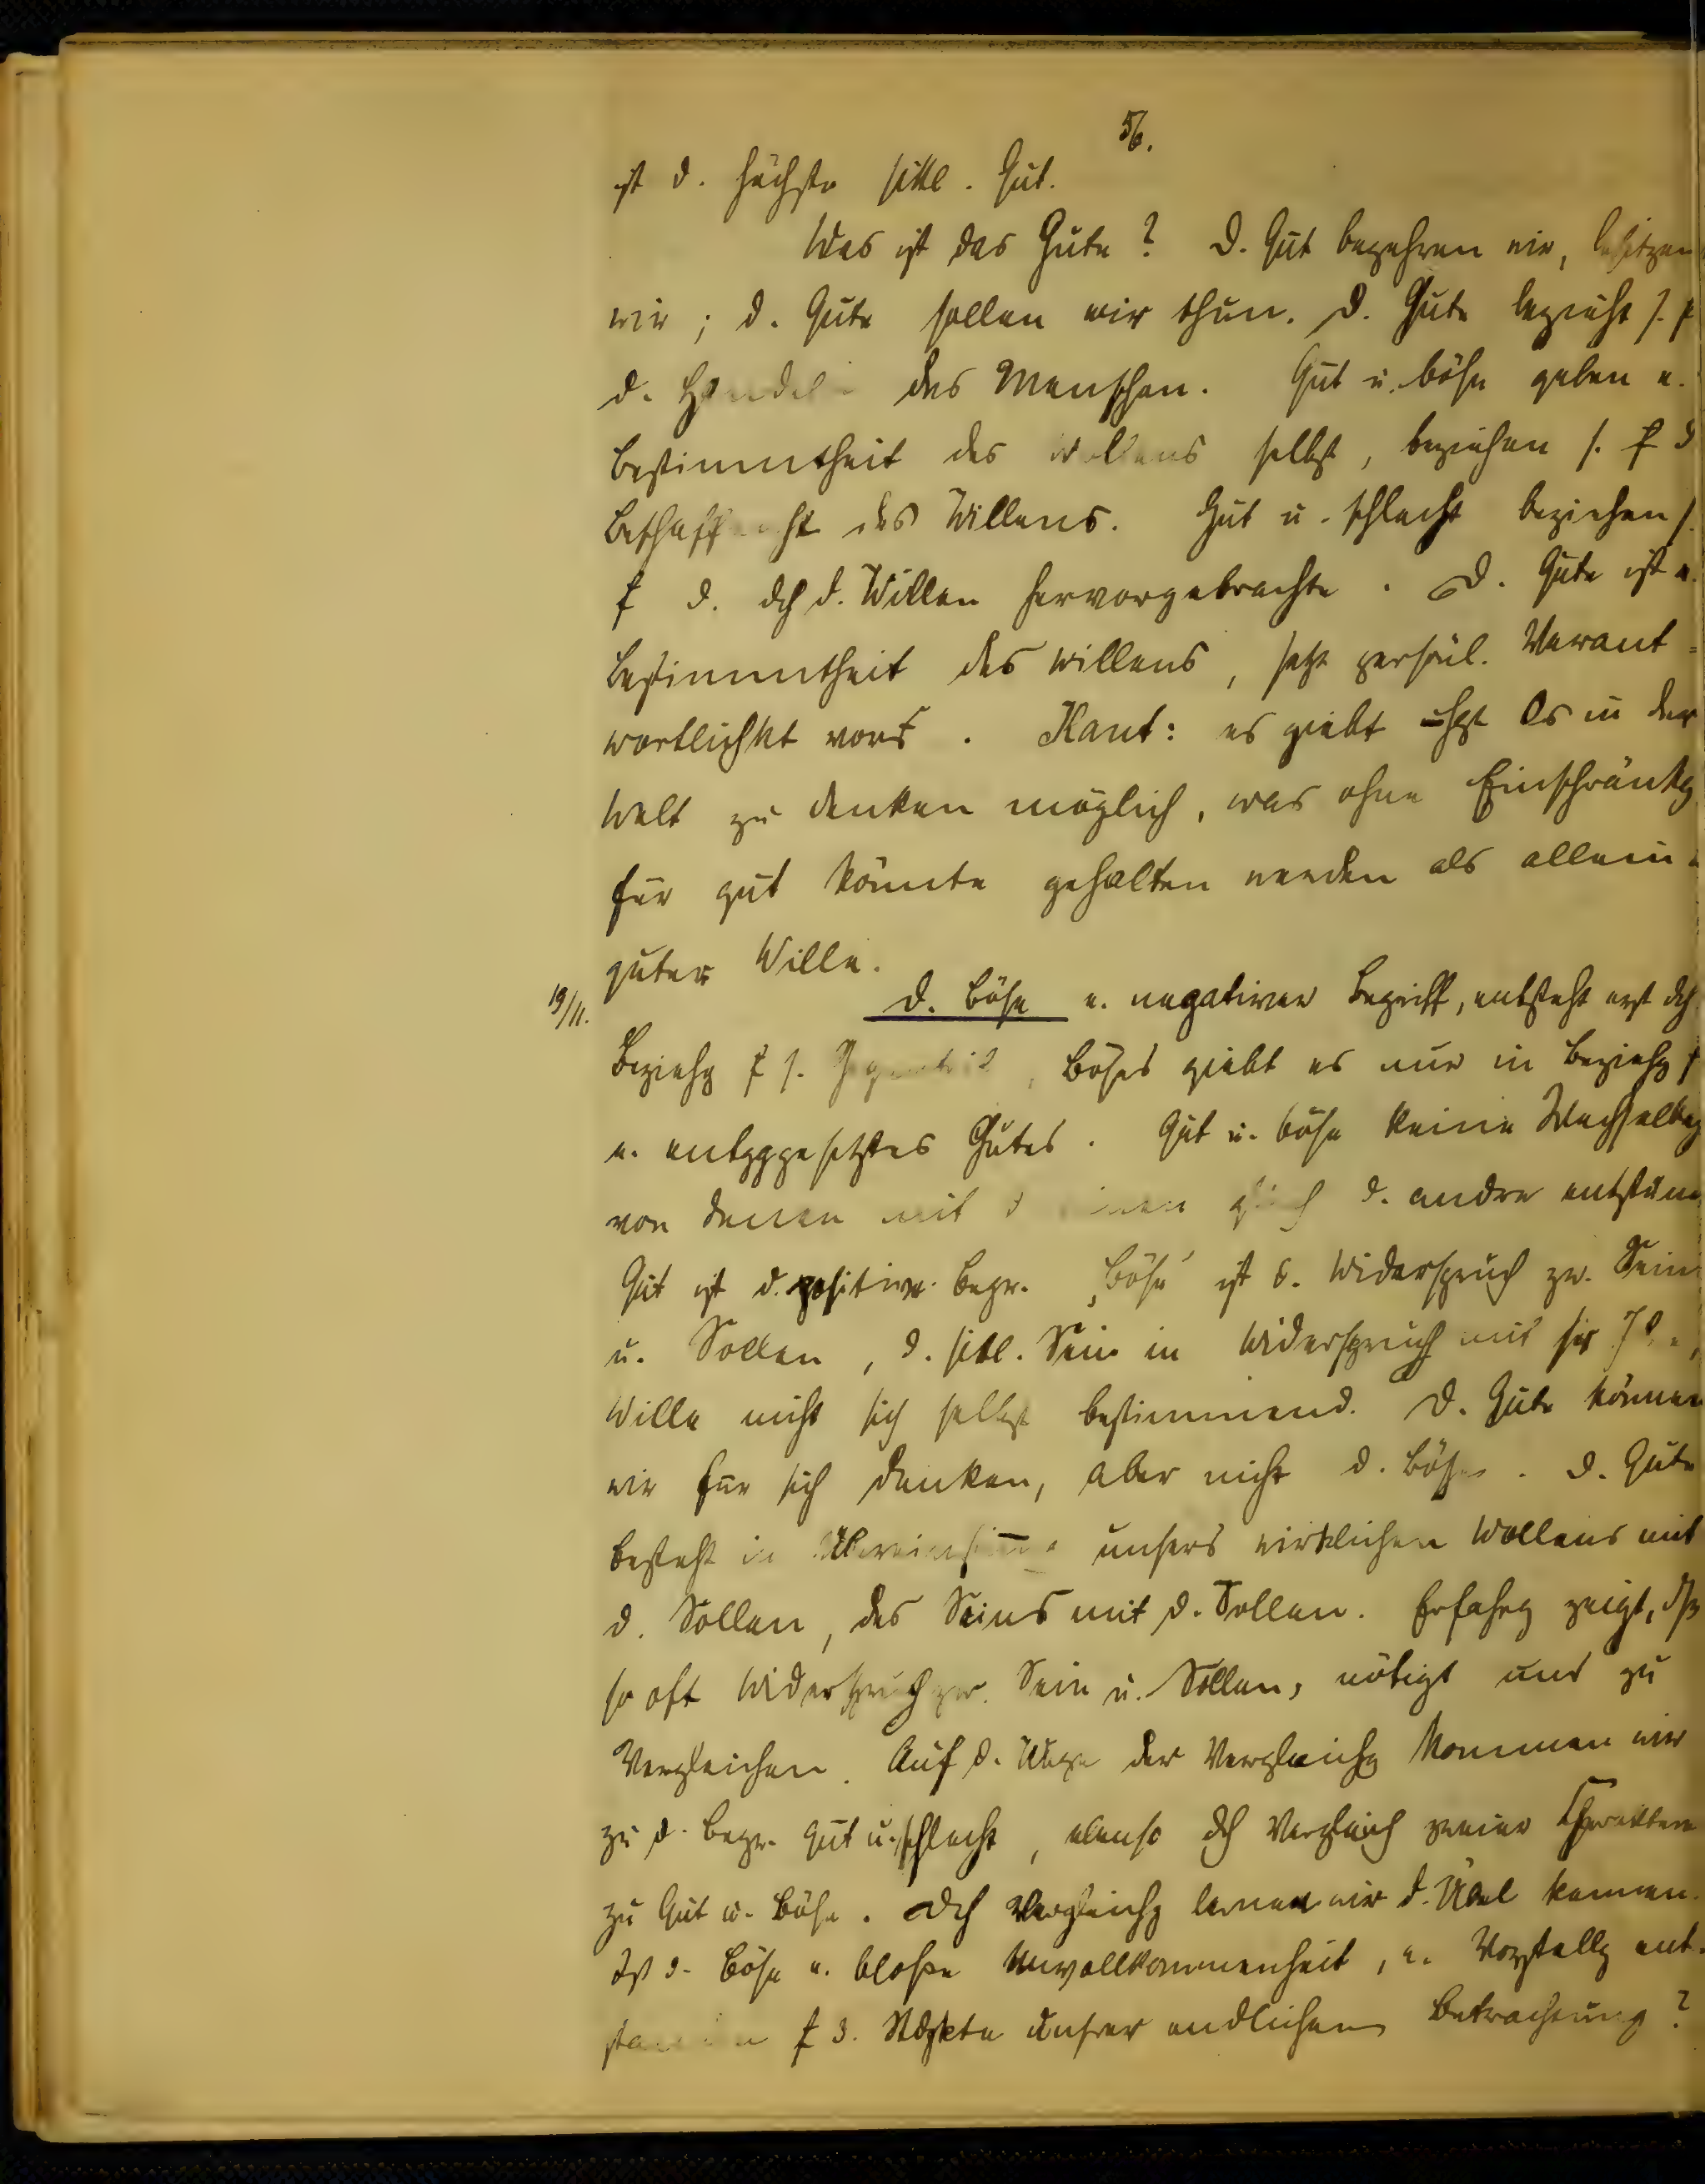 56.
ist d. höchste sittl. Gut.
Was ist das Gute? D. Gut begehren wir, besitzen
wir; d. Gute sollen wir thun. D. Gute bezieht s. f
d. Handeln des Menschen. Gut u. böse geben e.
Bestimmtheit des Wollens selbst, beziehen s. f d
Beschaffenht des Willens. Gut u. schlecht beziehen s.
f d. dch d. Willen hervorgebrachte. D. Gute ist e.
Bestimmtheit des Willens, setzt persönl. Verant=
wortlichkt vors. Kant: es giebt in der
Welt zu denken möglich, was ohne Einschränkg
für gut könnte gehalten werden als allein e.
guter Wille.
19/11. D. Böse e. negativer Begriff, entsteht erst dch
Beziehg f s. Gegenteil, Böses giebt es nur in Beziehg f
e. entggesetztes Gutes. Gut u. böse keine Wechselbeg
von denen mit d einen gleich d. andre entstün
Gut ist d. positive Begr. „Böse" ist d. Widerspruch zw. Sein
u. Sollen, d. sittl. Sein in Widerspruch mit
Wille nicht sich selbst bestimmend. D. Gute können
wir für sich denken, aber nicht d. Böse. D. Gute
besteht in unsers wirklichen Wollens mit
d. Sollen, des Seins mit d. Sollen. Erfahrg zeigt, dß
so oft Widerspruch zw. Sein u. Sollen, nötigt uns zu
Vergleichen. Auf d. Wege der Vergleichg kommen wir
zu d. Begr. gut u. schlecht, ebenso dch Vergleich zweier Charaktere
zu Gut u. Böse. Dch Vergleichg lernen wir d. Übel kennen.
Ist d. Böse e. bloße Unvollkommenheit, e. Vorstellg ent-
standen f d. unsrer endlichen Betrachtung?